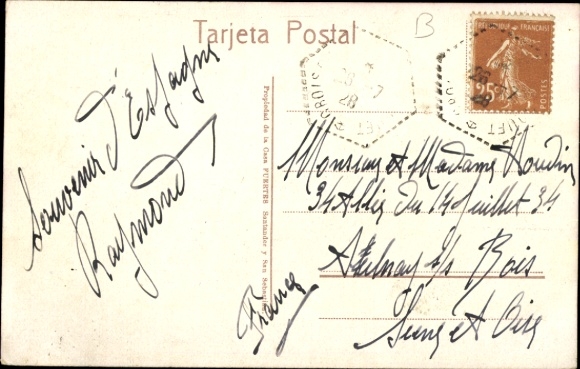 Tarjeta Postal
B
Souvenir d'Espagne
Raymond
Propiedad de la Casa FUERTES Santander y San
REPUBLIQUE FRANÇAISE
25c
POSTES
28
28
Monsieur et Madame
34 Allée du 14 Juillet 34
Aulnay s/s Bois
Seine et Oise
France